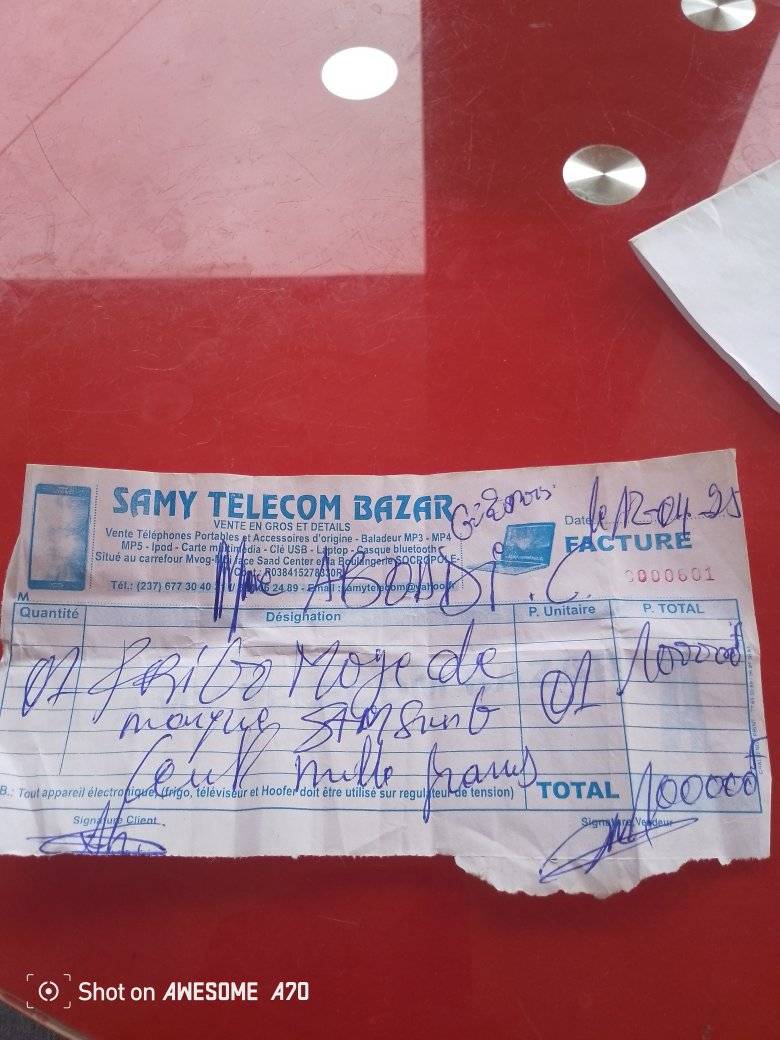 SAMY TELECOM BAZAR
VENTE EN GROS ET DETAILS
Vente Téléphones Portables et Accessoires d'origine - Baladeur MP3 - MP4
MP5 - Ipod - Carte multimédia - Clé USB - Laptop - Casque bluetooth
Situé au carrefour Mvog- face Saad Center et la Boulangerie SOCROPOLE-
R038415278
Tél.: (237) 677 30 40 24 89 - Email : samytelecom@yahoo.fr
Date le 12-04-25
FACTURE
0000601
M ABONDI . C.
Quantité Désignation P. Unitaire P. TOTAL
01 Frigo Moye de 01 100000f
marque SAMSUNG
Cent mille francs
B.: Tout appareil électronique (frigo, téléviseur et Hoofer doit être utilisé sur regulateur de tension) TOTAL 100000f
Signature Client Signature Vendeur
Shot on AWESOME A70